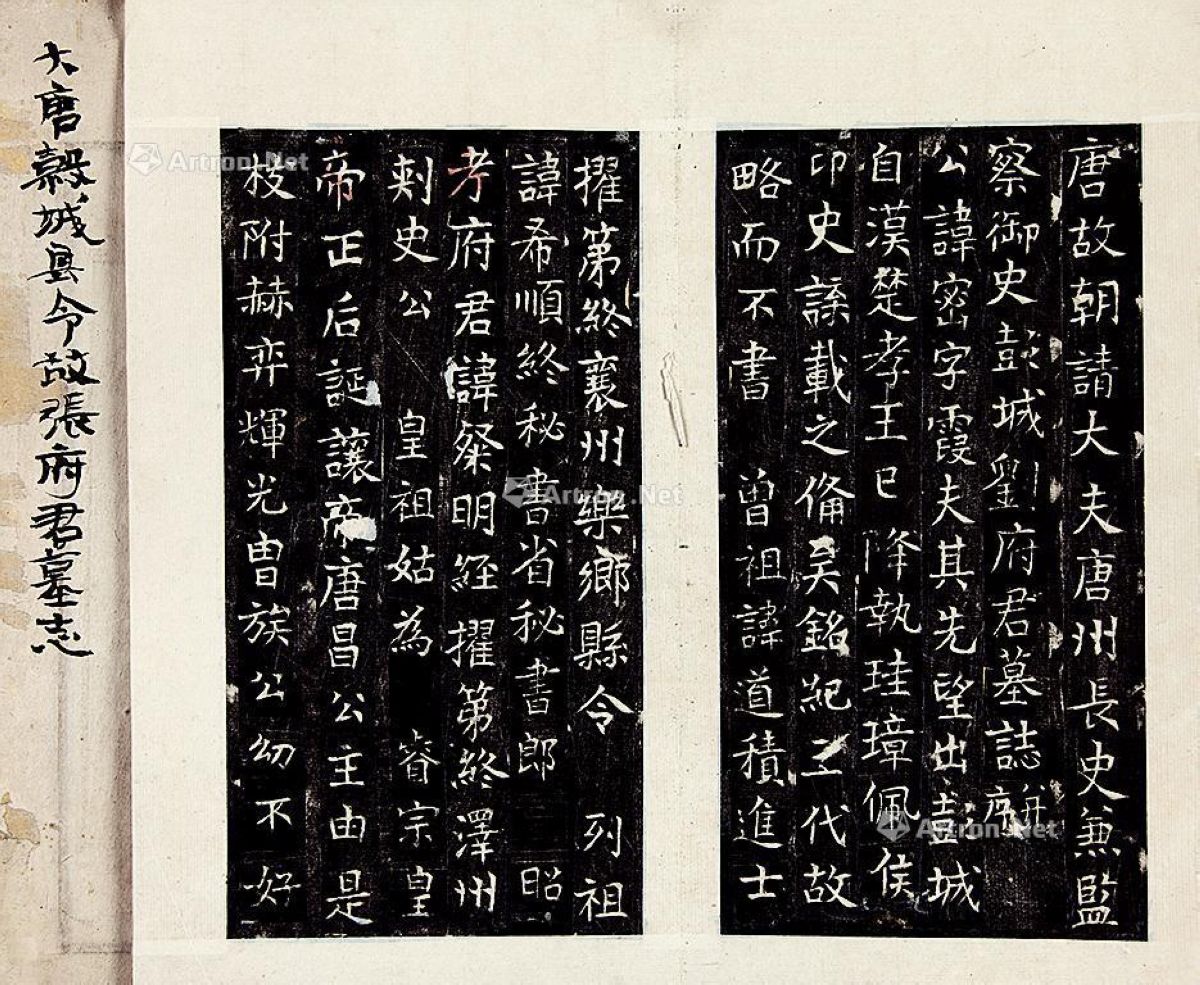 唐故朝請大夫唐州長史兼監
察御史彭城劉府君墓誌并序
公諱密字霞夫其先望出彭城
自漢楚孝王已降執珪璋佩侯
印史諜載之俻矣銘紀二代故
略而不書 曾祖諱道積進士
擢第終襄州樂鄉縣令 列祖
諱希順終秘書省秘書郎 昭
孝府君諱粲明經擢第終澤州
刺史公 皇祖姑為 睿宗皇
帝正后誕讓帝唐昌公主由是
枝附赫弈輝光胄族公幼不好
大唐穀城县令故張府君墓志
Artron.Net
Artron.Net
Artron.Net